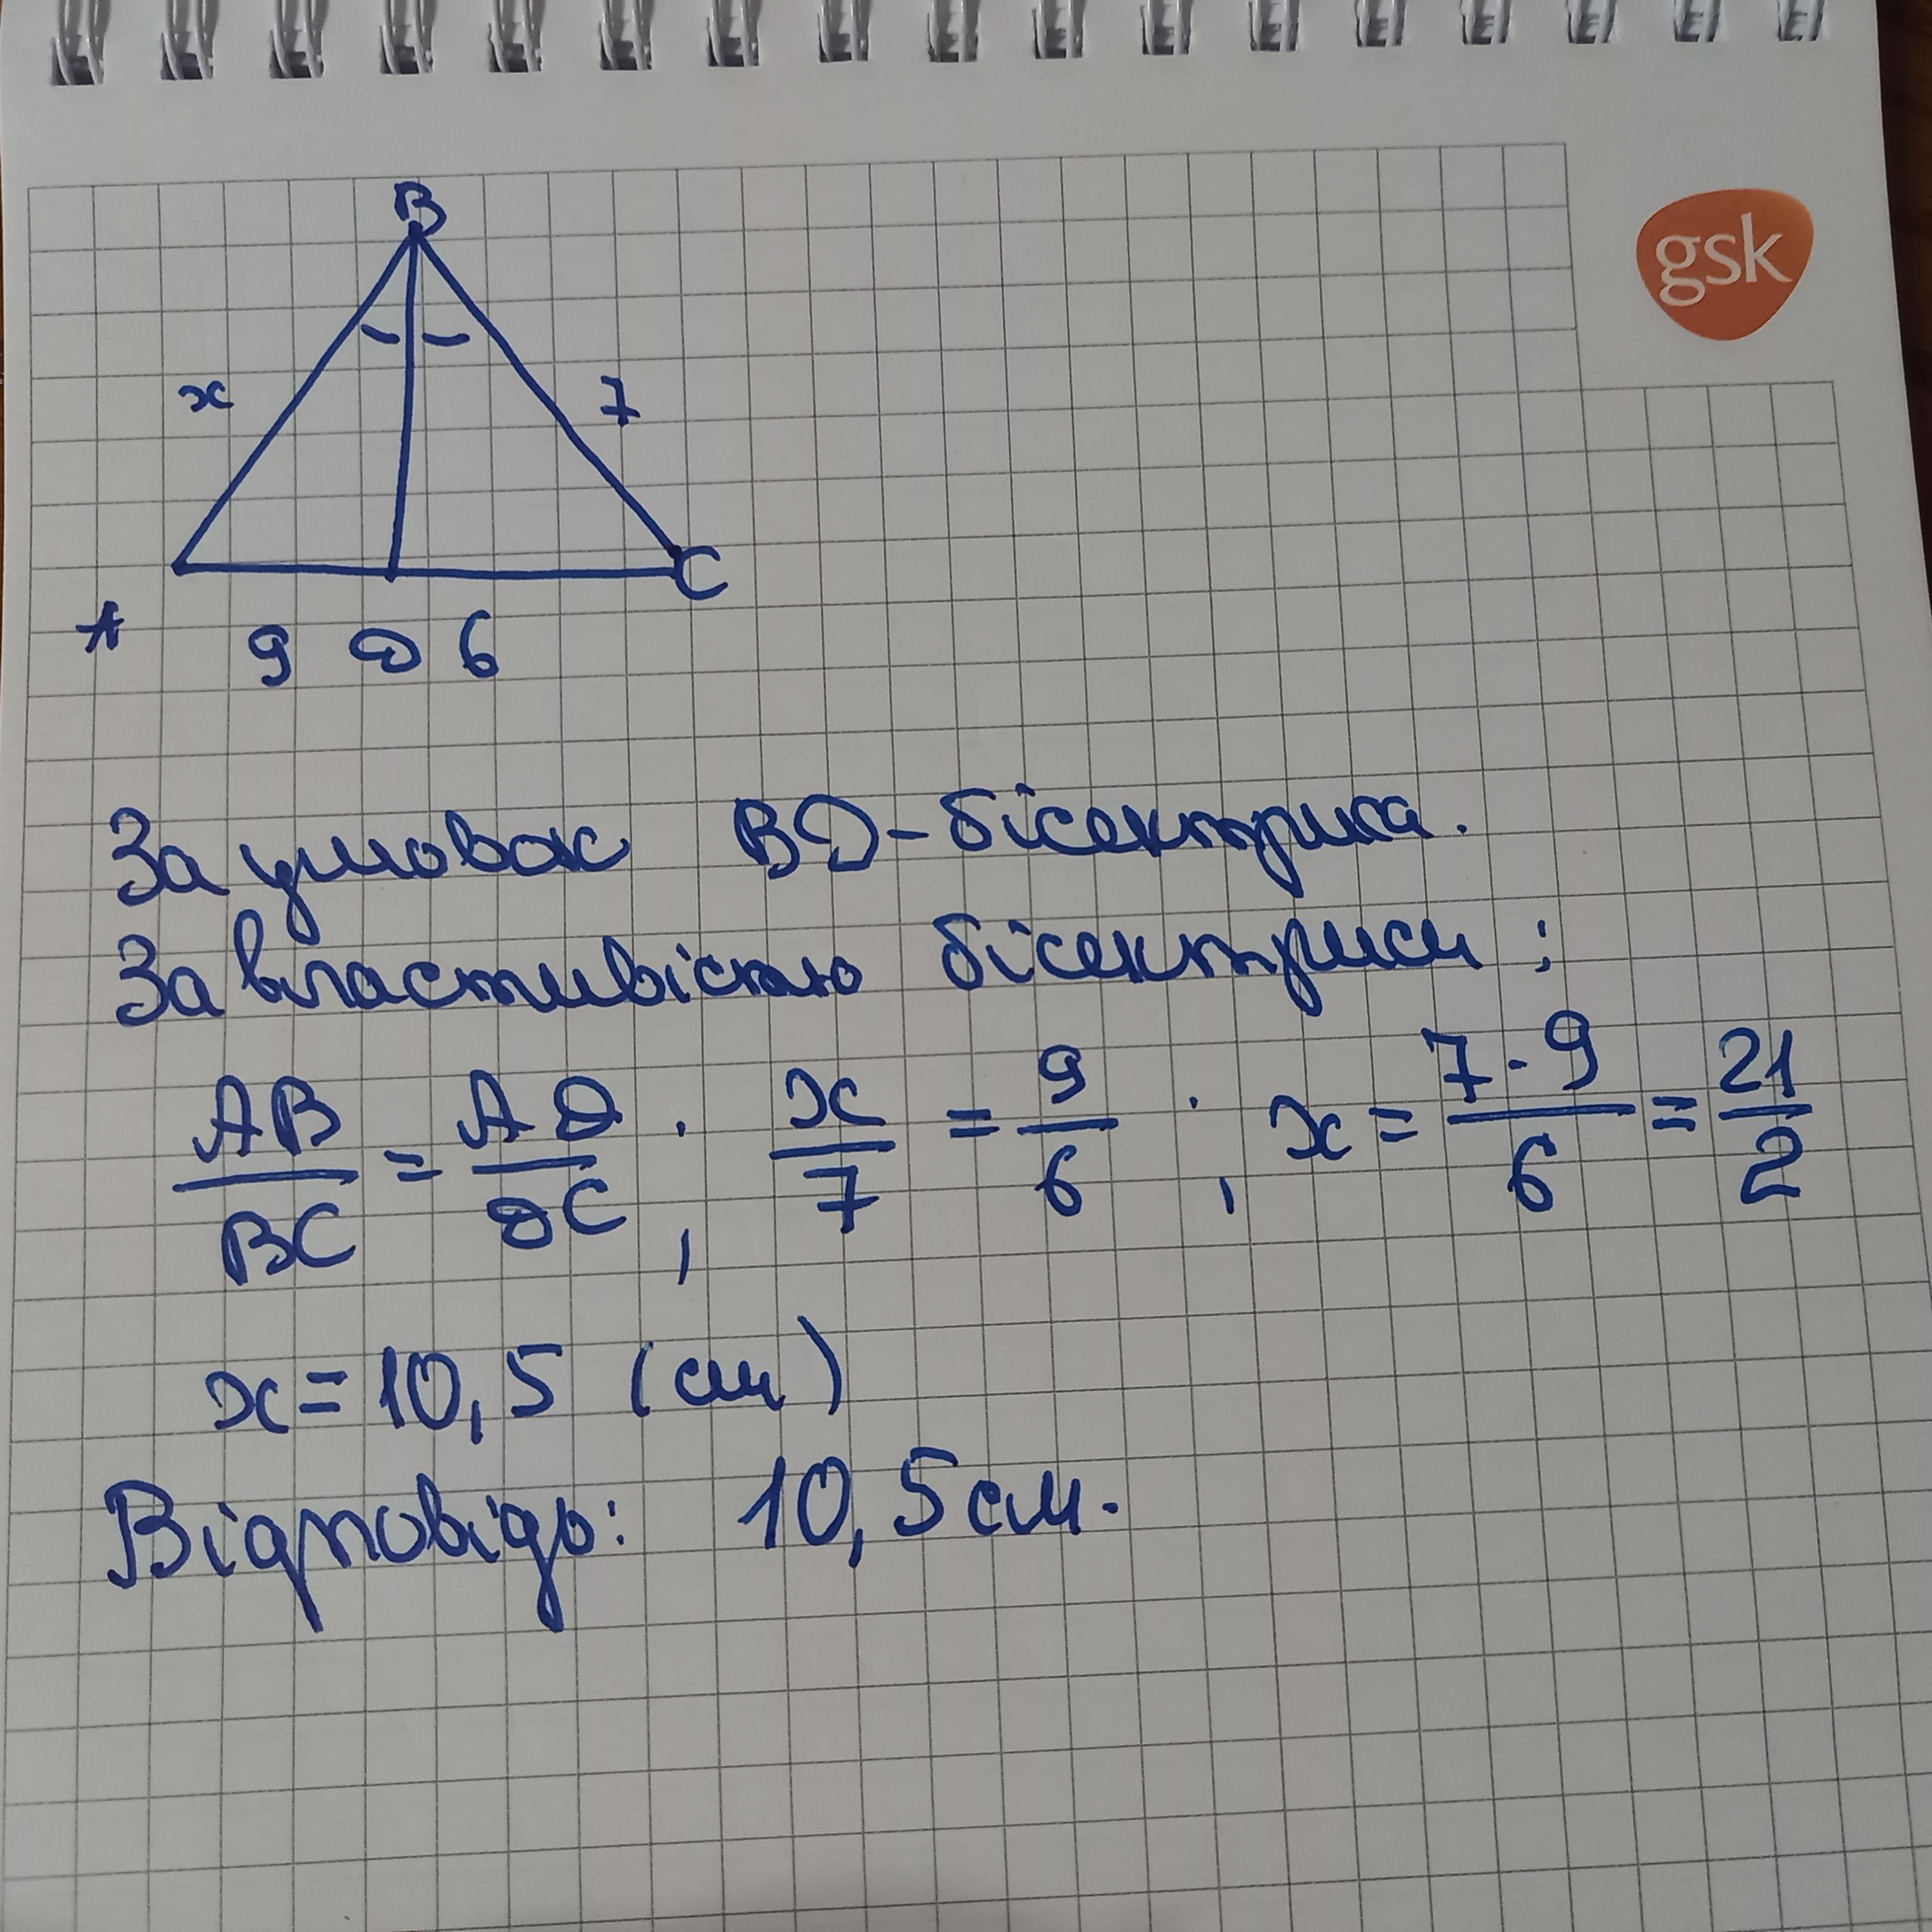 B
gsk
x
7
C
A
9 D 6
За умовою BD - бісектриса.
За властивістю бісектриси :
AB/BC = AD/DC ; x/7 = 9/6 ; x = 7·9/6 = 21/2
x = 10,5 (см)
Відповідь: 10,5 см.